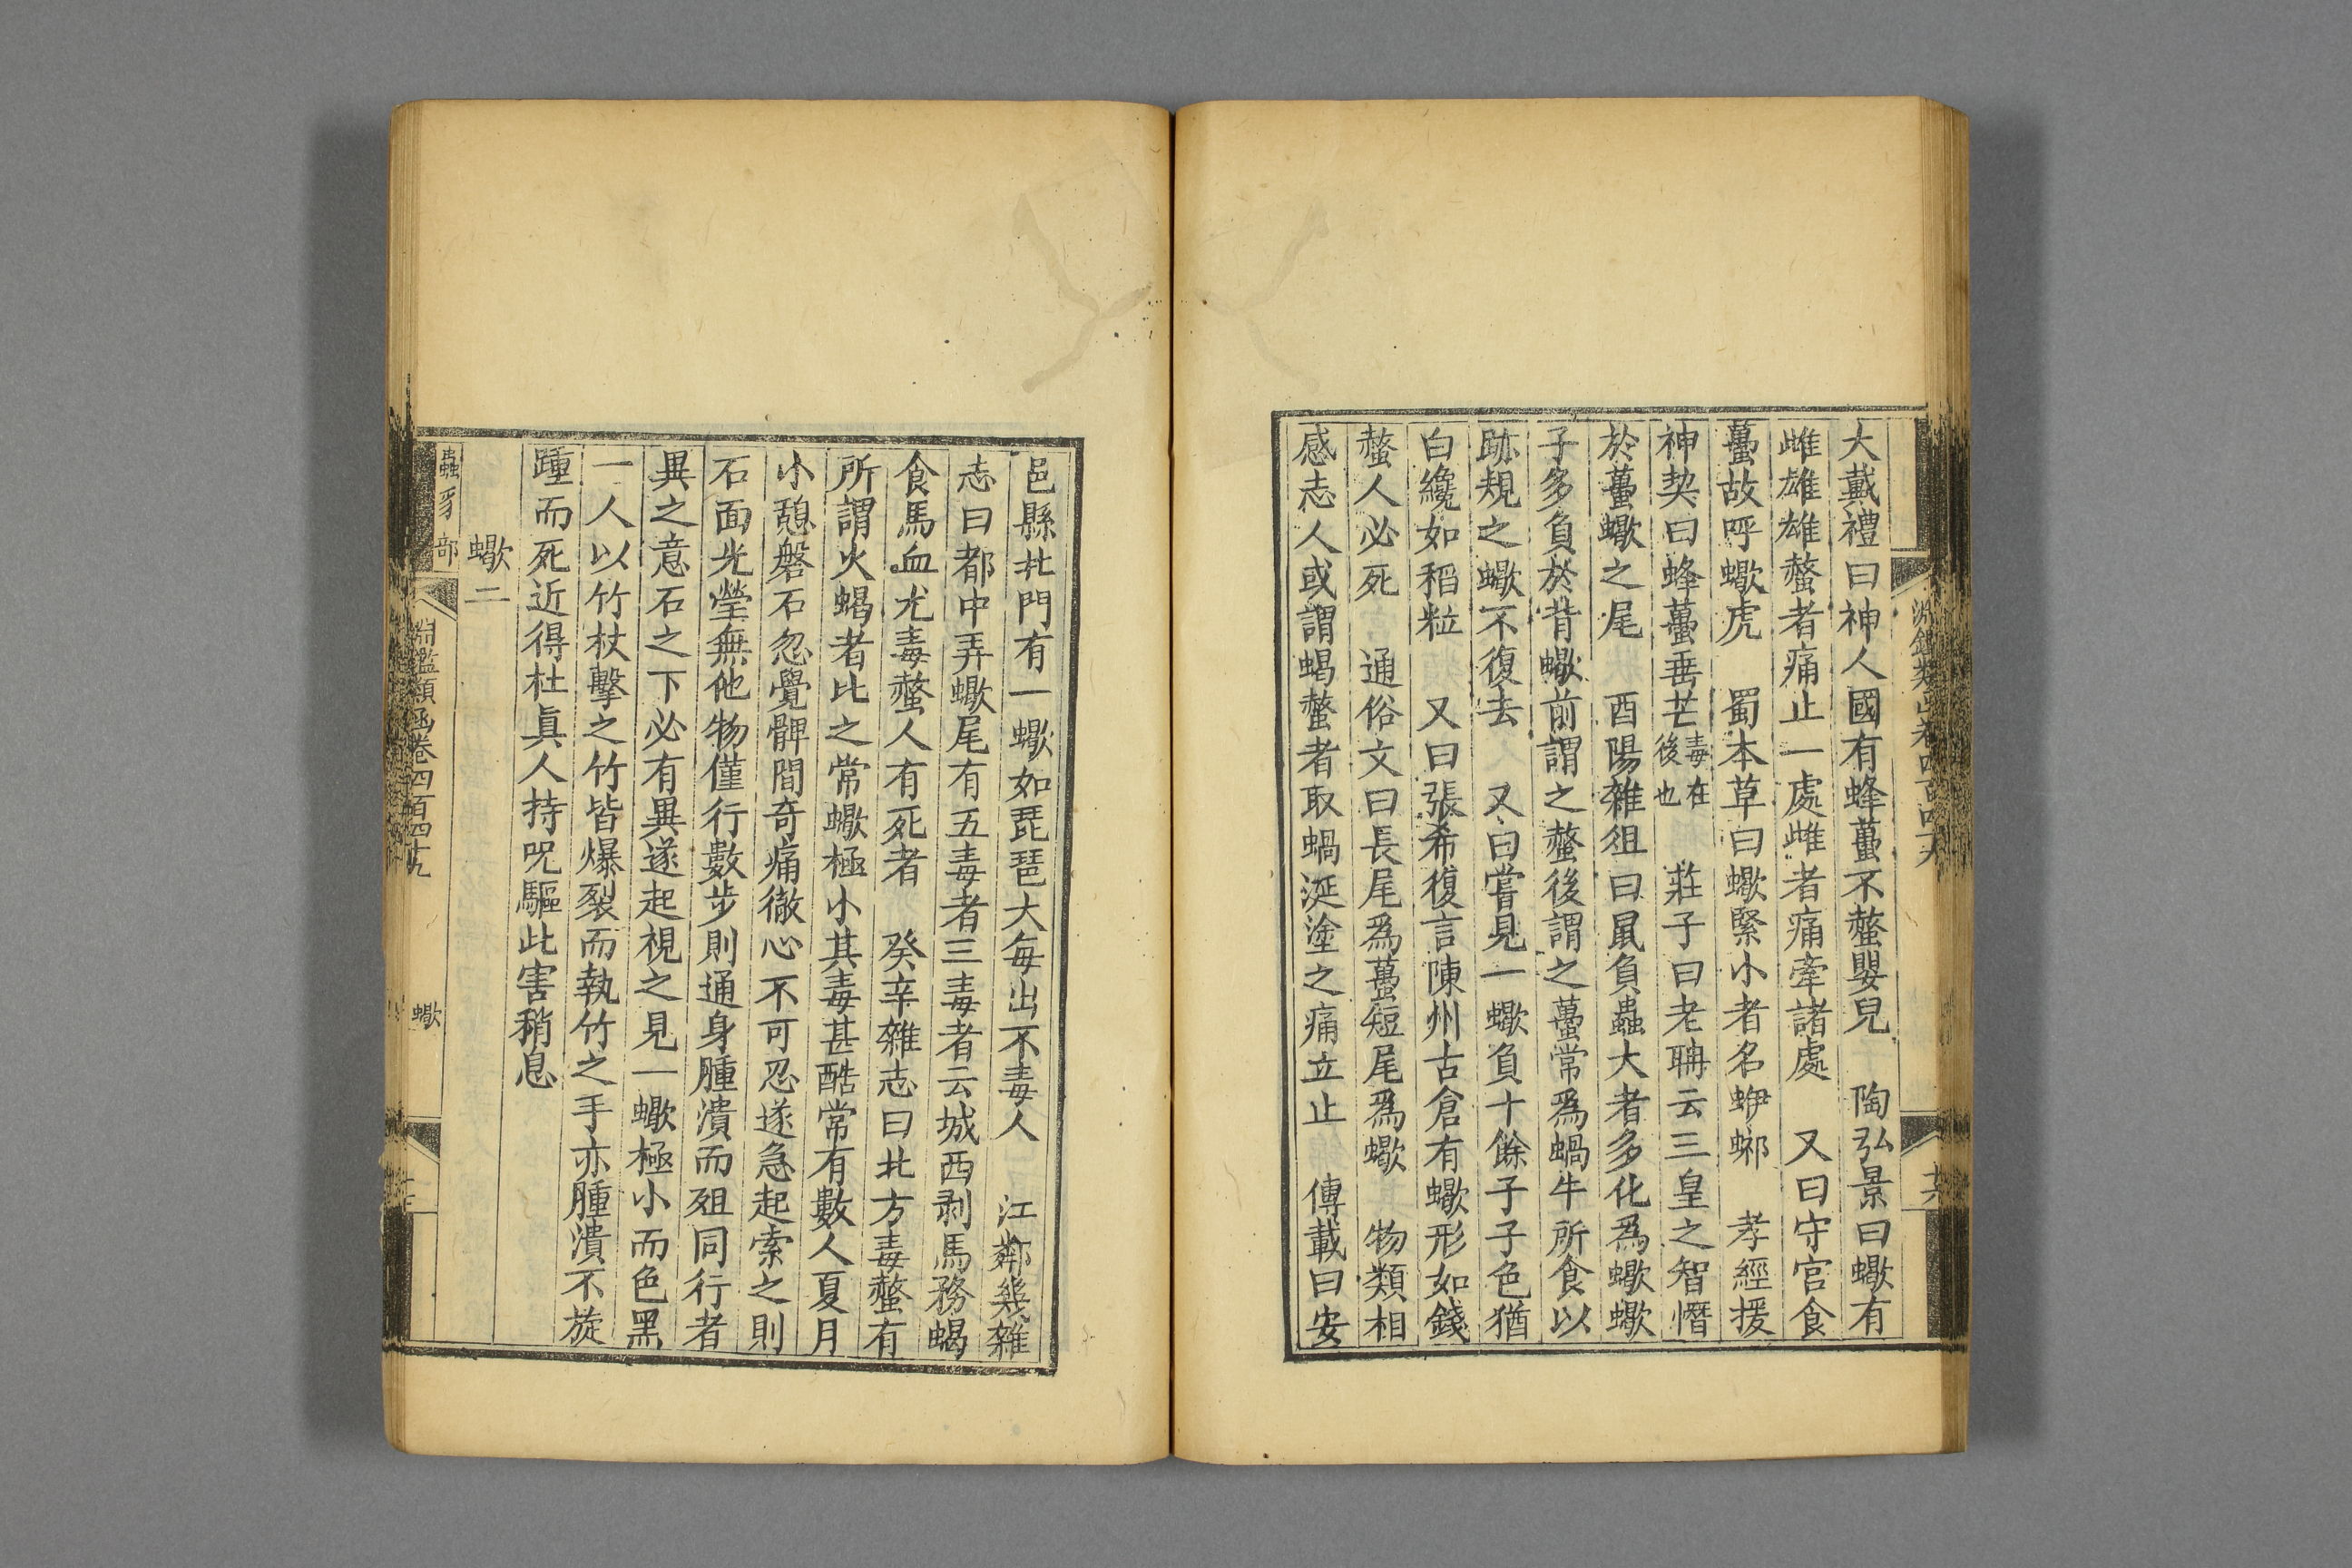 大戴禮曰神人國有蜂蠆不螫嬰兒　陶弘景曰蠍有
雌雄雄螫者痛止一處雌者痛牽諸處　又曰守宮食
蠆故呼蠍虎　蜀本草曰蠍緊小者名蛜𧍪　孝經援
神契曰蜂蠆垂芒毒在後也　莊子曰老聃云三皇之智憯
於蠆蠍之尾　酉陽雜俎曰鼠負蟲大者多化為蠍蠍
子多負於背蠍前謂之螫後謂之蠆常為蝸牛所食以
跡規之蠍不復去　又曰嘗見一蠍負十餘子子色猶
白纔如稻粒　又曰張希復言陳州古倉有蠍形如錢
螫人必死　通俗文曰長尾為蠆短尾為蠍　物類相
感志人或謂蝎螫者取蝸涎塗之痛立止　傳載曰安
邑縣北門有一蠍如琵琶大每出不毒人　江鄰幾雜
志曰都中弄蠍尾有五毒者三毒者云城西剥馬務蝎
食馬血尤毒螫人有死者　癸辛雜志曰北方毒螫有
所謂火蝎者比之常蠍極小其毒甚酷常有數人夏月
小憩磐石忽覺髀間奇痛徹心不可忍遂急起索之則
石面光瑩無他物僅行數步則通身腫潰而殂同行者
異之意石之下必有異遂起視之見一蠍極小而色黑
一人以竹杖擊之竹皆爆裂而執竹之手亦腫潰不旋
踵而死近得杜眞人持呪驅此害稍息
蠍二
蟲豸部
淵鑑類函卷四百四十九
蠍